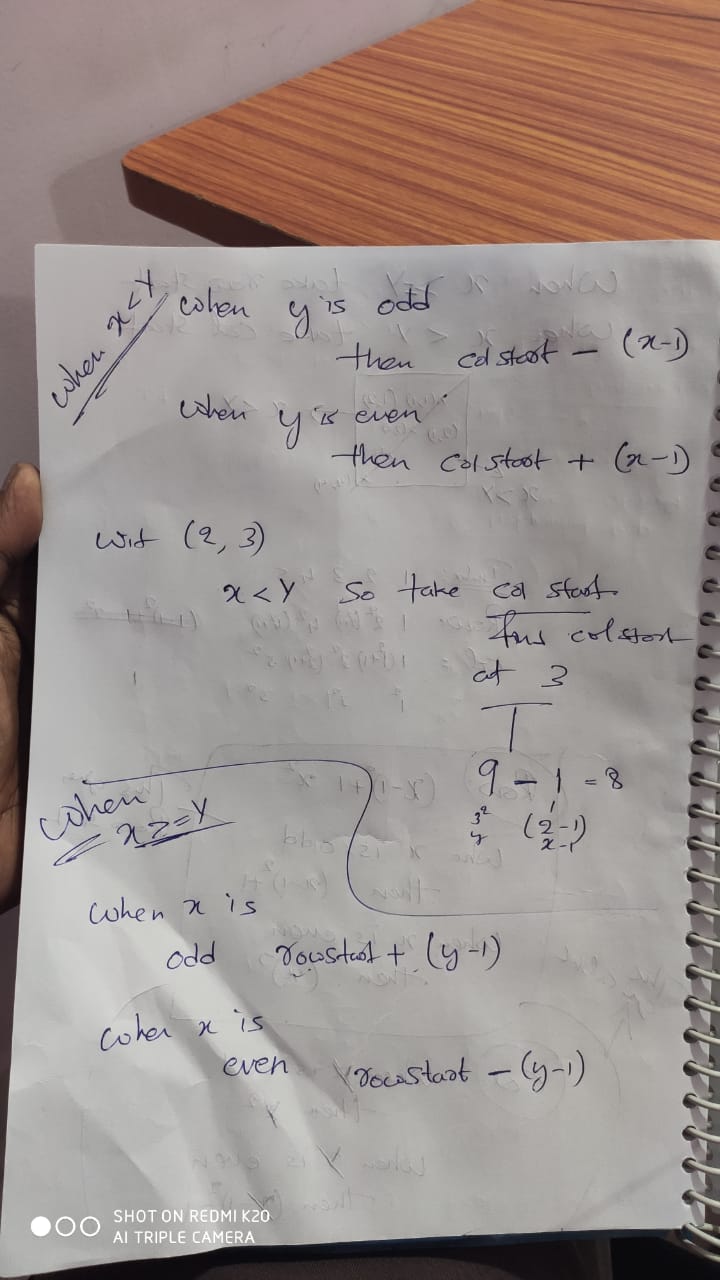 when x < Y
when y is odd
then colstart - (x-1)
when y is even
then colstart + (x-1)
(2, 3)
x < Y so take col start
colstart
at 3
9 - 1 = 8
3² (2-1)
y x-1
when
x >= Y
when x is
odd rowstart + (y-1)
when x is
even rowstart - (y-1)
SHOT ON REDMI K20
AI TRIPLE CAMERA